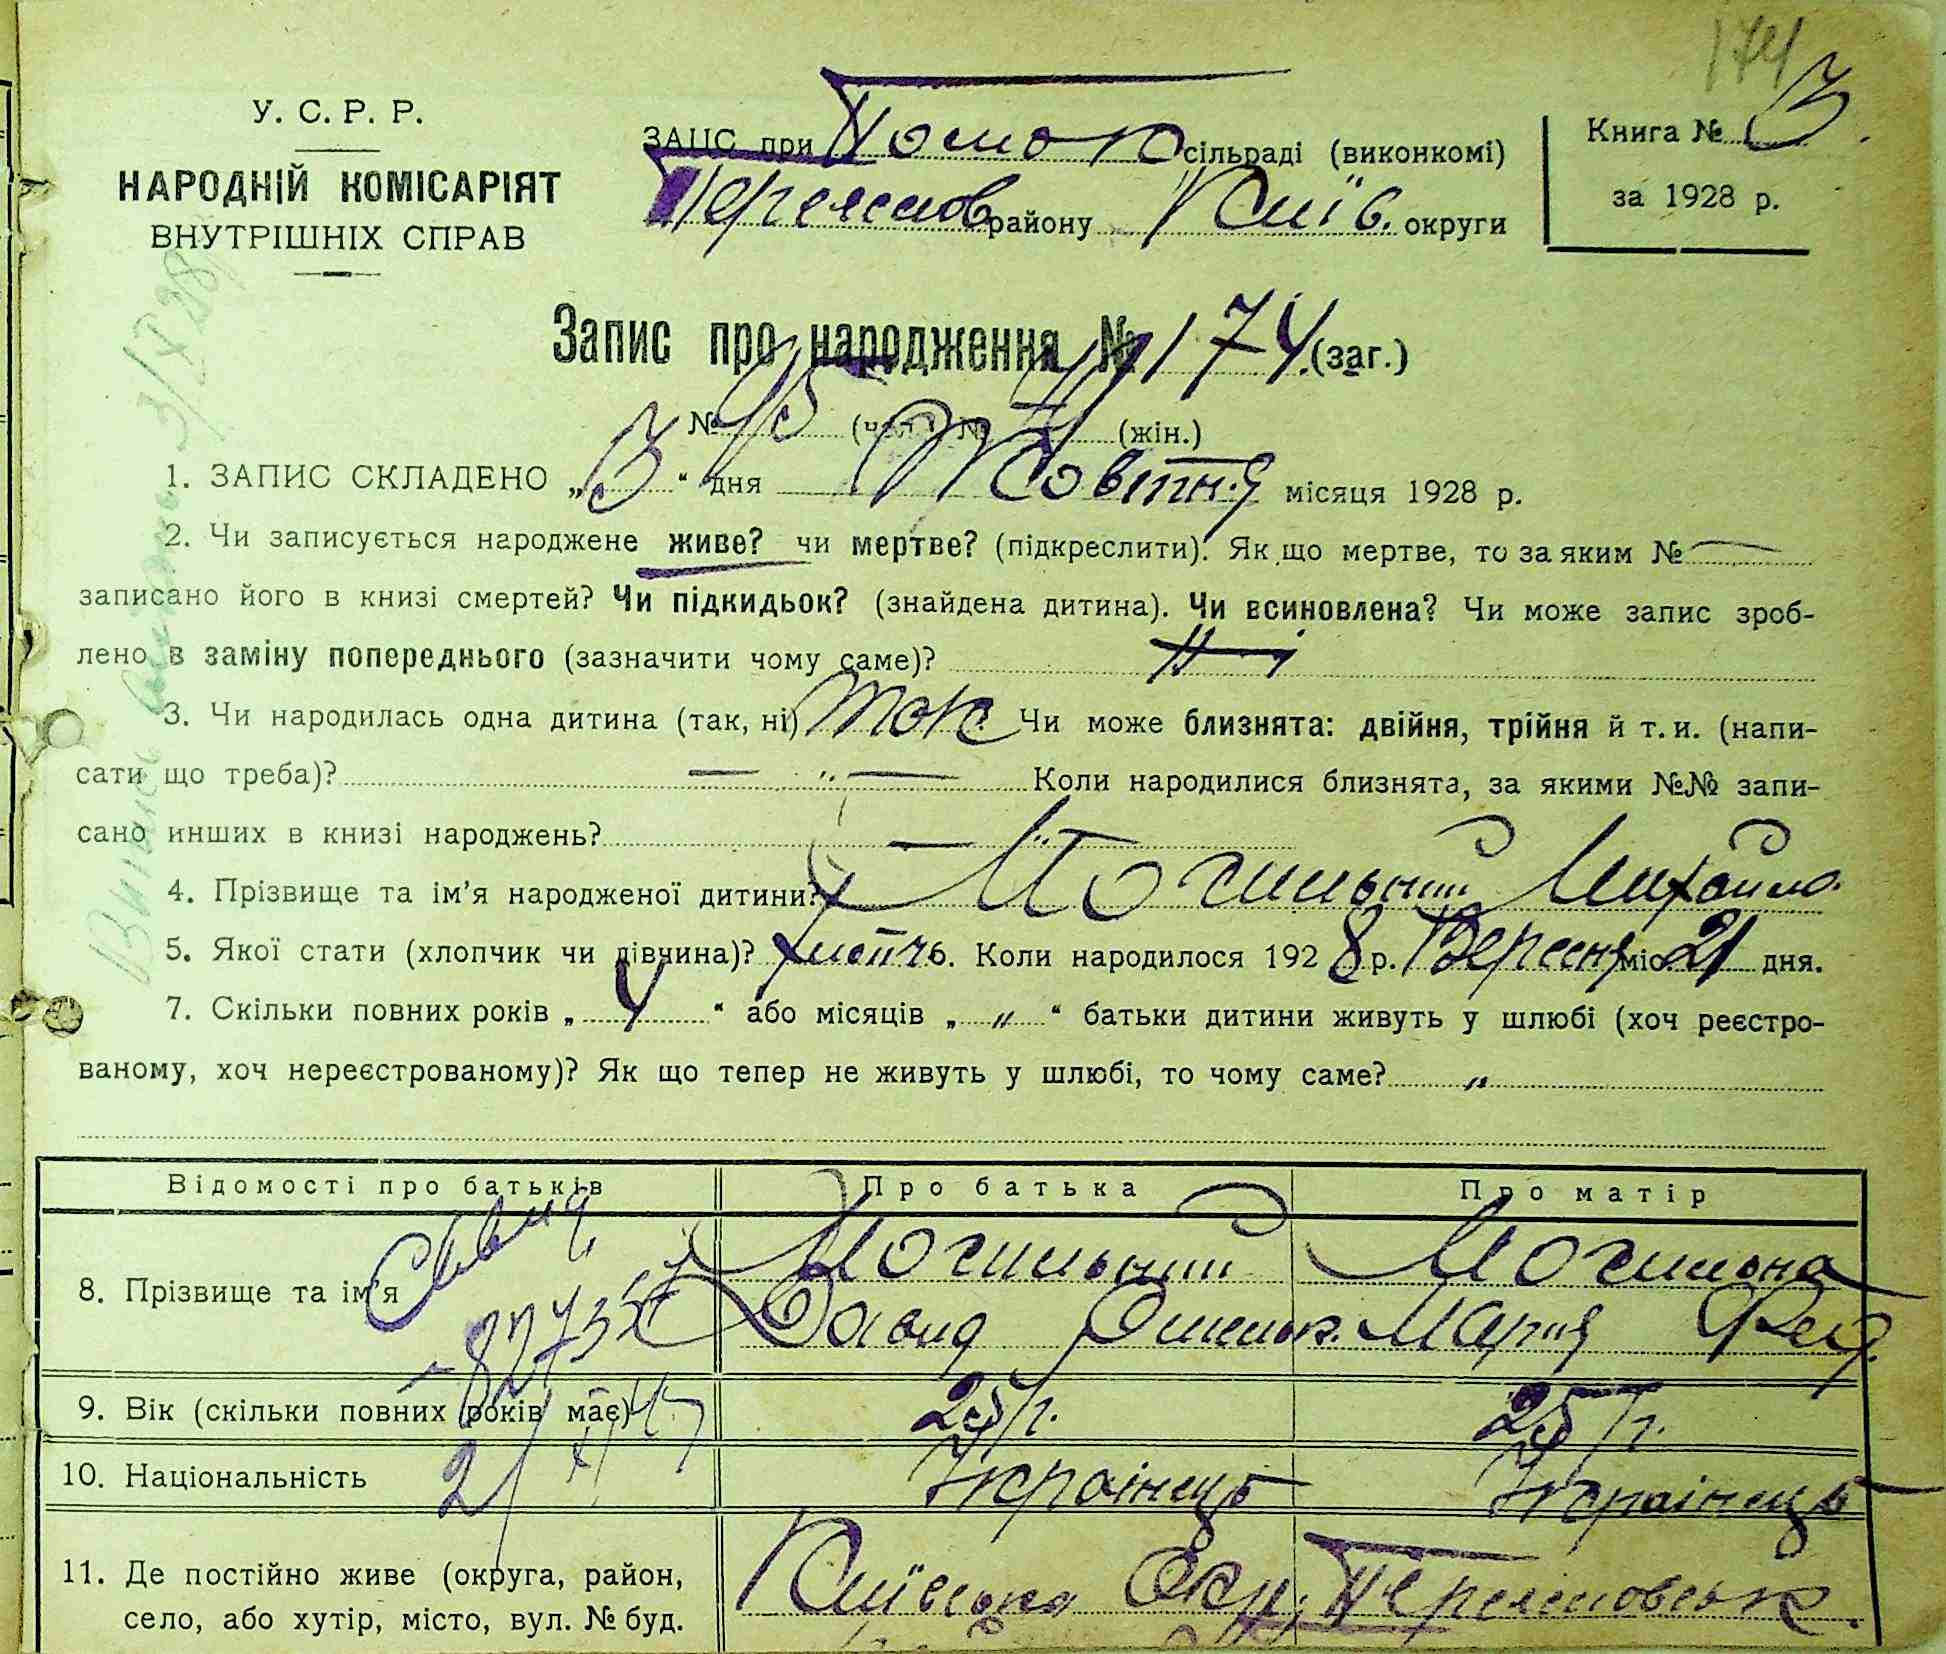 174
У. С. Р. Р.
НАРОДНІЙ КОМІСАРІЯТ
ВНУТРІШНІХ СПРАВ
ЗАЦС при сільраді (виконкомі)
району Київ. округи
Книга № 3
за 1928 р.
Запис про народження № 174 (заг.)
№ 95 (чол.) № 79 (жін.)
1. ЗАПИС СКЛАДЕНО „3“ дня Жовтня місяця 1928 р.
2. Чи записується народжене живе? чи мертве? (підкреслити). Як що мертве, то за яким № —
записано його в книзі смертей? Чи підкидьок? (знайдена дитина). Чи всиновлена? Чи може запис зроб-
лено в заміну попереднього (зазначити чому саме)? Ні
3. Чи народилась одна дитина (так, ні) так Чи може близнята: двійня, трійня й т. и. (напи-
сати що треба)? — „ — Коли народилися близнята, за якими №№ запи-
сано инших в книзі народжень? —
4. Прізвище та ім’я народженої дитини? Могильний Михайло.
5. Якої стати (хлопчик чи дівчина)? хлопч. Коли народилося 1928 р. Вересня міс. 21 дня.
7. Скільки повних років „ 4 “ або місяців „ „ “ батьки дитини живуть у шлюбі (хоч реєстро-
ваному, хоч нереєстрованому)? Як що тепер не живуть у шлюбі, то чому саме? „
Відомості про батьків Про батька Про матір
8. Прізвище та ім’я Могильний Могильна
Давид Марія Фед.
9. Вік (скільки повних років має) 25 р. 25 р.
10. Національність Українець Українець
11. Де постійно живе (округа, район, Київська Окр,
село, або хутір, місто, вул. № буд.